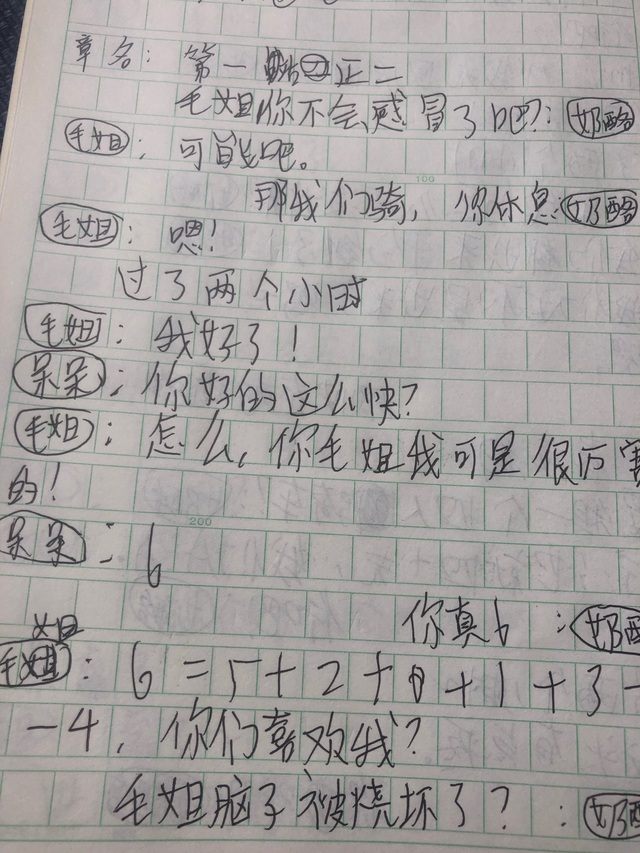 章名：第一 正二
毛姐你不会感冒了吧?：奶酪
毛姐：可能吧。
100
那我们骑，你休息：奶酪
毛姐：嗯!
过了两个小时
毛姐：我好了!
呆呆：你好的这么快?
毛姐：怎么，你毛姐我可是很厉害
的!
200
呆呆：6
你真6：奶酪
姐
毛姐：6=5+2+0+1+3-
-4，你们喜欢我?
毛姐脑子被烧坏了?：奶酪